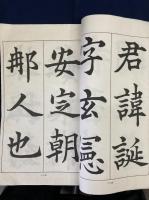 君諱誕
字玄憑
安定朝
那人也